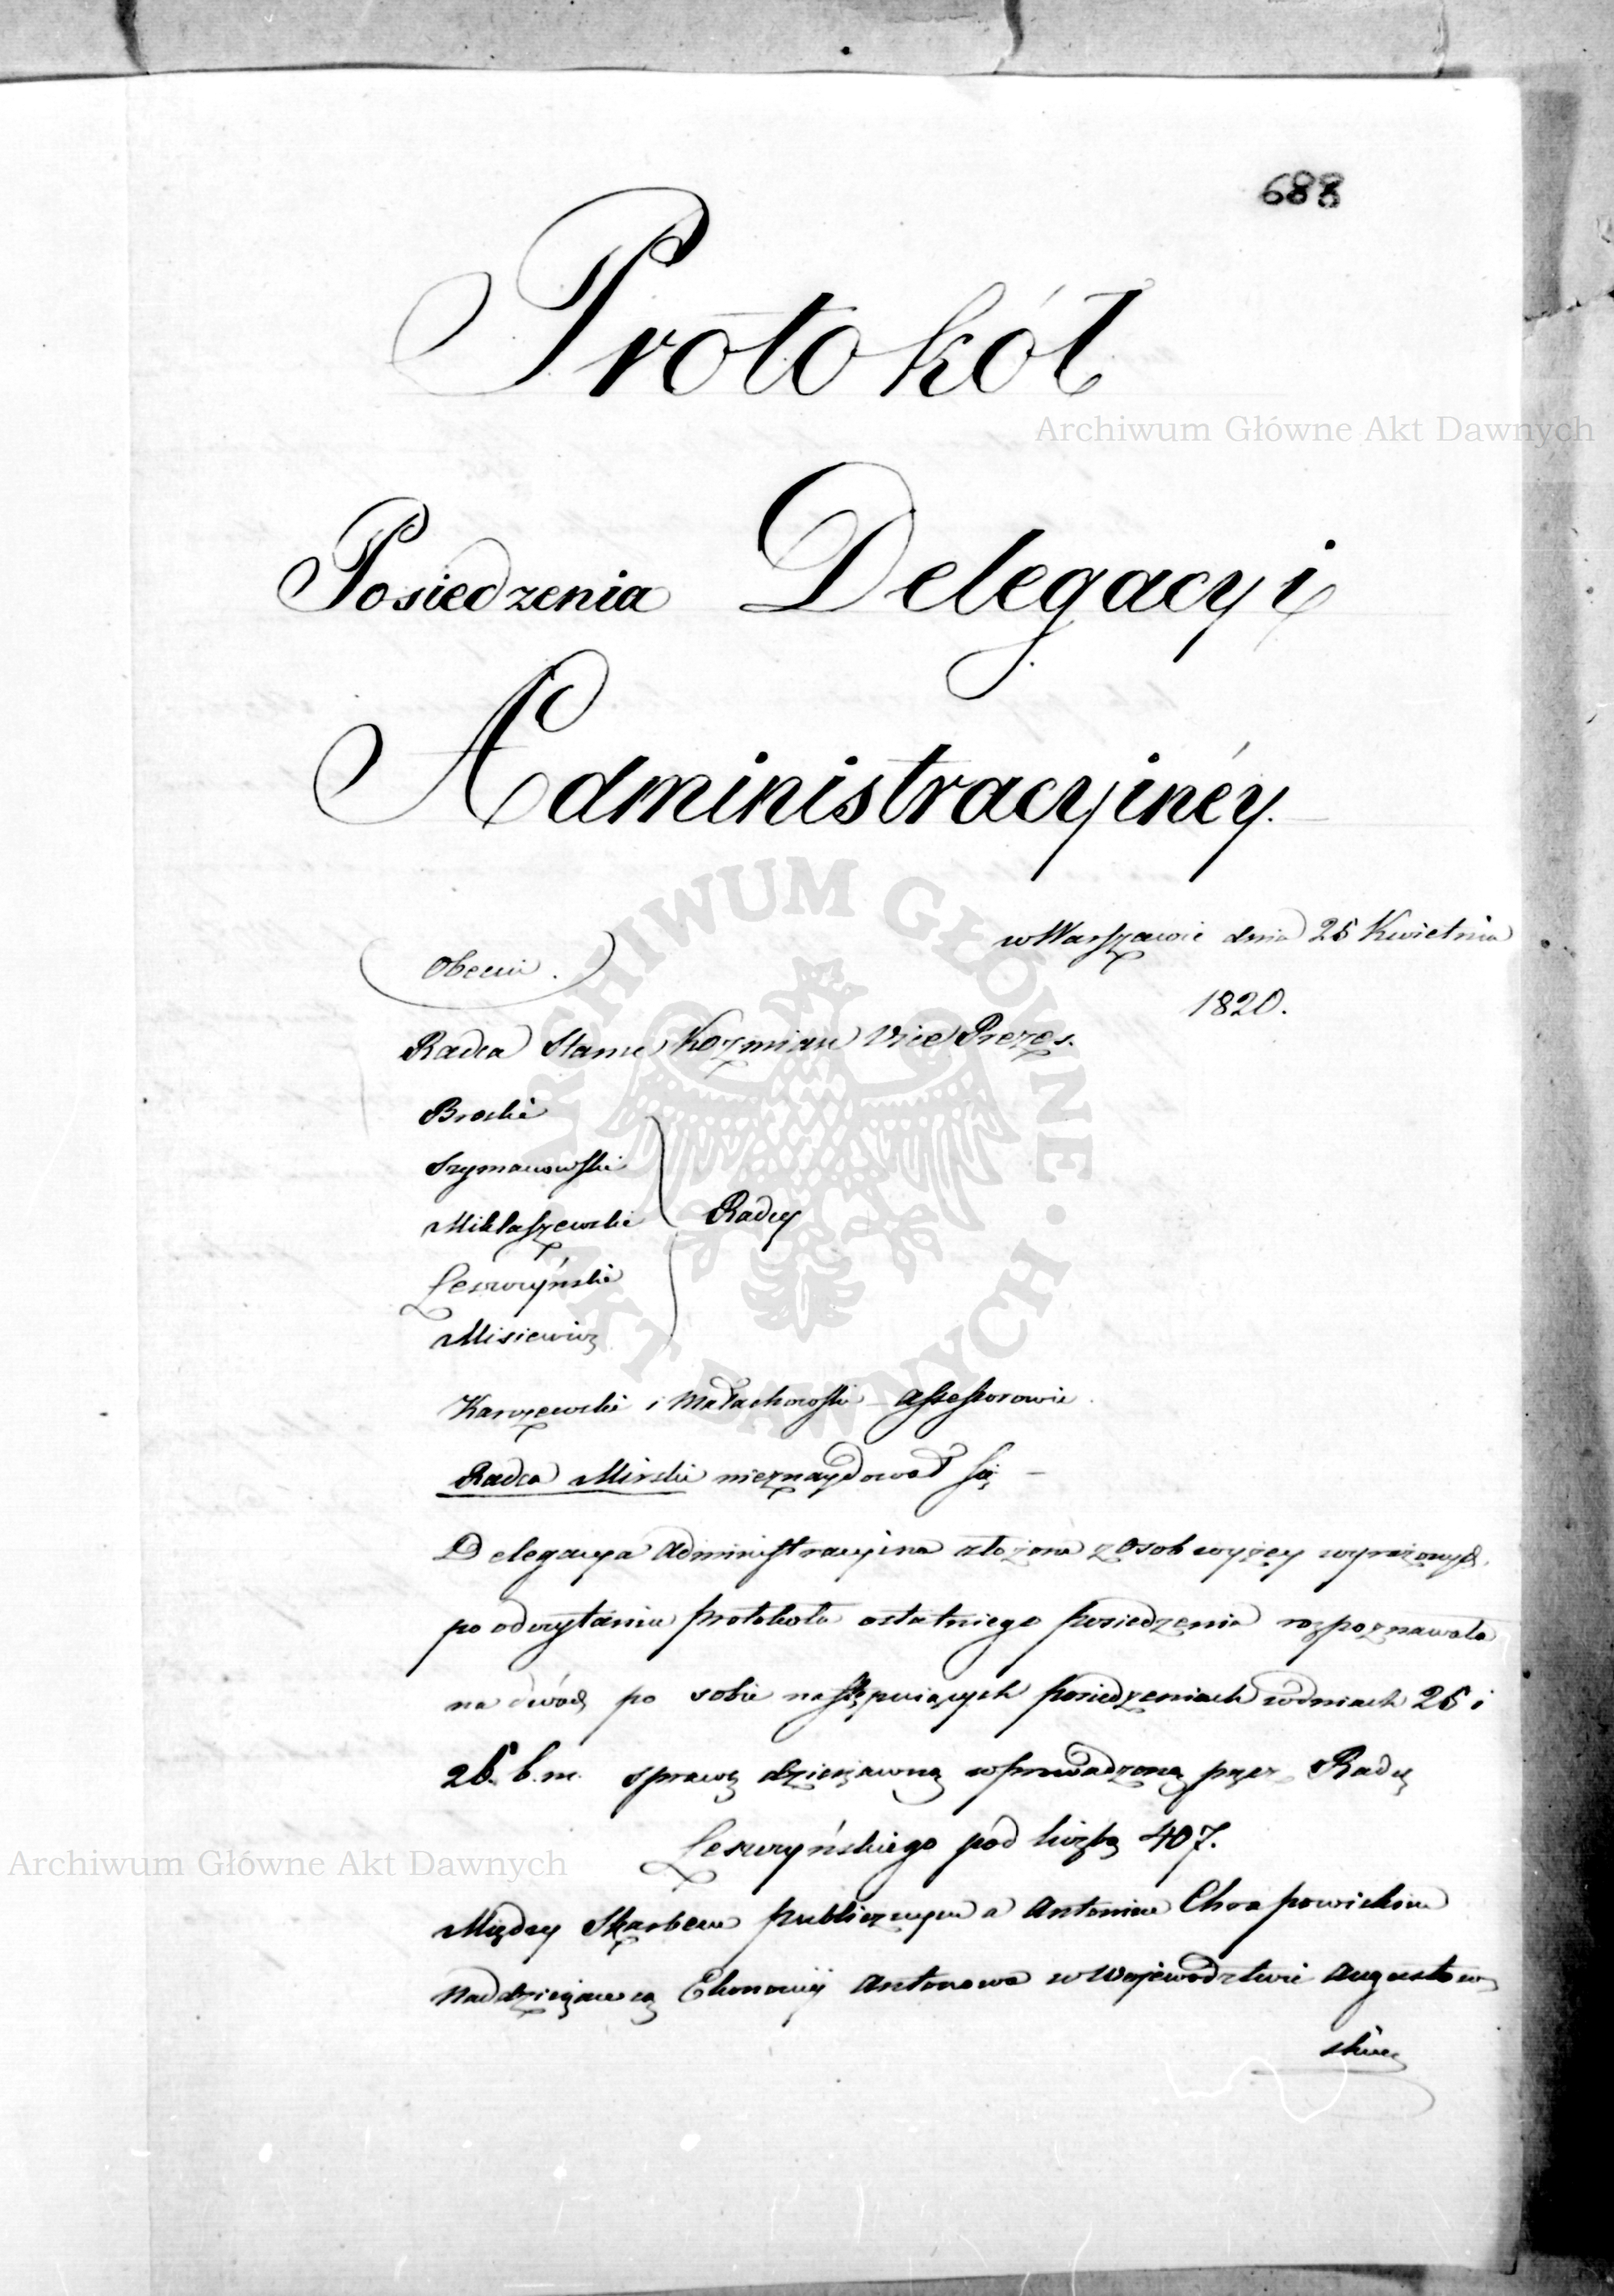 688
Protokół
Archiwum Główne Akt Dawnych
Posiedzenia Delegacyi
Administracyinéy.
w Warszawie dnia 25 Kwietnia
1820.
Obecni.
Radca Stanu Kozmian Vice Prezes.
Brocki
Szymanowski
Miklaszewski
Leszczyński
Misiewicz
Radcy
Karczewski i Małachowski Assessorowie.
Radca Mirski nieznaydował się —
Delegacya Administracyina złożona z osób wyżey wyrażonych,
po odczytaniu protokołu ostatniego posiedzenia rozpoznawała
na dwóch po sobie następuiących posiedzeniach w dniach 25 i
26. b. m. sprawę dzierżawną wprowadzoną przez Radcę
Leszczyńskiego pod liczbą 407.
Archiwum Główne Akt Dawnych
Między Skarbem publicznym a Antonim Chrapowickim
Naddzierżawcą Ekonomij Antonowo w Województwie Augustow
skim
ARCHIWUM GŁÓWNE · AKT DAWNYCH ·